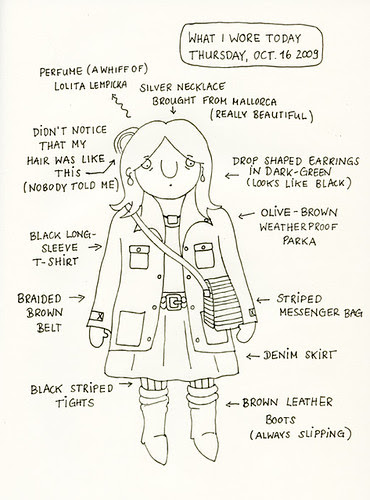 WHAT I WORE TODAY
THURSDAY, OCT. 16 2009
PERFUME (A WHIFF OF)
LOLITA LEMPICKA
SILVER NECKLACE
BROUGHT FROM MALLORCA
(REALLY BEAUTIFUL)
DIDN'T NOTICE
THAT MY
HAIR WAS LIKE
THIS
(NOBODY TOLD ME)
DROP SHAPED EARRINGS
IN DARK-GREEN
(LOOKS LIKE BLACK)
OLIVE-BROWN
WEATHERPROOF
PARKA
BLACK LONG-
SLEEVE
T-SHIRT
BRAIDED
BROWN
BELT
STRIPED
MESSENGER BAG
DENIM SKIRT
BLACK STRIPED
TIGHTS
BROWN LEATHER
BOOTS
(ALWAYS SLIPPING)